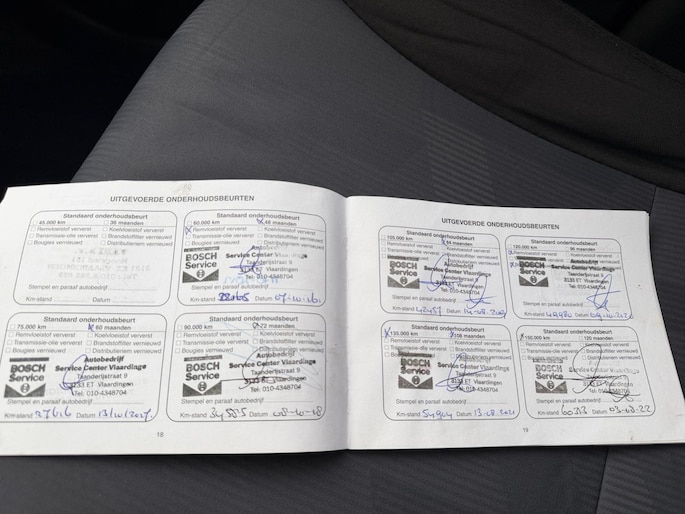 UITGEVOERDE ONDERHOUDSBEURTEN
Standaard onderhoudsbeurt
45.000 km 36 maanden
Remvloeistof ververst Koelvloeistof ververst
Transmissie-olie ververst Brandstoffilter vernieuwd
Bougies vernieuwd Distributieriem vernieuwd
Stempel en paraaf autobedrijf
Km-stand Datum
Standaard onderhoudsbeurt
60.000 km 48 maanden
Remvloeistof ververst Koelvloeistof ververst
Transmissie-olie ververst Brandstoffilter vernieuwd
Bougies vernieuwd Distributieriem vernieuwd
BOSCH
Service
Autobedrijf
Service Center Vlaardinge
Taanderijstraat 9
3133 ET Vlaardingen
Tel: 010-4348704
Stempel en paraaf autobedrijf
Km-stand Datum 07-10-16
Standaard onderhoudsbeurt
75.000 km 60 maanden
Remvloeistof ververst Koelvloeistof ververst
Transmissie-olie ververst Brandstoffilter vernieuwd
Bougies vernieuwd Distributieriem vernieuwd
BOSCH
Service
Autobedrijf
Service Center Vlaardinge
Taanderijstraat 9
3133 ET Vlaardingen
Tel: 010-4348704
Stempel en paraaf autobedrijf
Km-stand 27616 Datum 13/10/2017
Standaard onderhoudsbeurt
90.000 km 72 maanden
Remvloeistof ververst Koelvloeistof ververst
Transmissie-olie ververst Brandstoffilter vernieuwd
Bougies vernieuwd Distributieriem vernieuwd
BOSCH
Service
Autobedrijf
Service Center Vlaardinge
Taanderijstraat 9
3133 ET Vlaardingen
Tel: 010-4348704
Stempel en paraaf autobedrijf
Km-stand 34555 Datum 08-10-18
18
UITGEVOERDE ONDERHOUDSBEURTEN
Standaard onderhoudsbeurt
105.000 km 84 maanden
Remvloeistof ververst Koelvloeistof ververst
Transmissie-olie ververst Brandstoffilter vernieuwd
Bougies vernieuwd
BOSCH
Service
Service Center Vlaardinge
Taanderijstraat 9
3133 ET Vlaardingen
Tel: 010-4348704
Stempel en paraaf autobedrijf
Km-stand 42457 Datum
Standaard onderhoudsbeurt
120.000 km 96 maanden
Remvloeistof ververst Koelvloeistof ververst
BOSCH
Service
Autobedrijf
Service Center Vlaardinge
Taanderijstraat 9
3133 ET Vlaardingen
Tel: 010-4348704
Stempel en paraaf autobedrijf
Km-stand Datum
Standaard onderhoudsbeurt
135.000 km 108 maanden
Remvloeistof ververst Koelvloeistof ververst
Transmissie-olie ververst Brandstoffilter vernieuwd
BOSCH
Service
Service Center Vlaardinge
Taanderijstraat 9
3133 ET Vlaardingen
Tel: 010-4348704
Stempel en paraaf autobedrijf
Km-stand 54904 Datum 13-08-2021
Standaard onderhoudsbeurt
150.000 km 120 maanden
Remvloeistof ververst Koelvloeistof ververst
Transmissie-olie ververst Brandstoffilter vernieuwd
BOSCH
Service
Autobedrijf
Service Center Vlaardinge
Taanderijstraat 9
3133 ET Vlaardingen
Tel: 010-4348704
Stempel en paraaf autobedrijf
Km-stand 60313 Datum 03-08-22
19